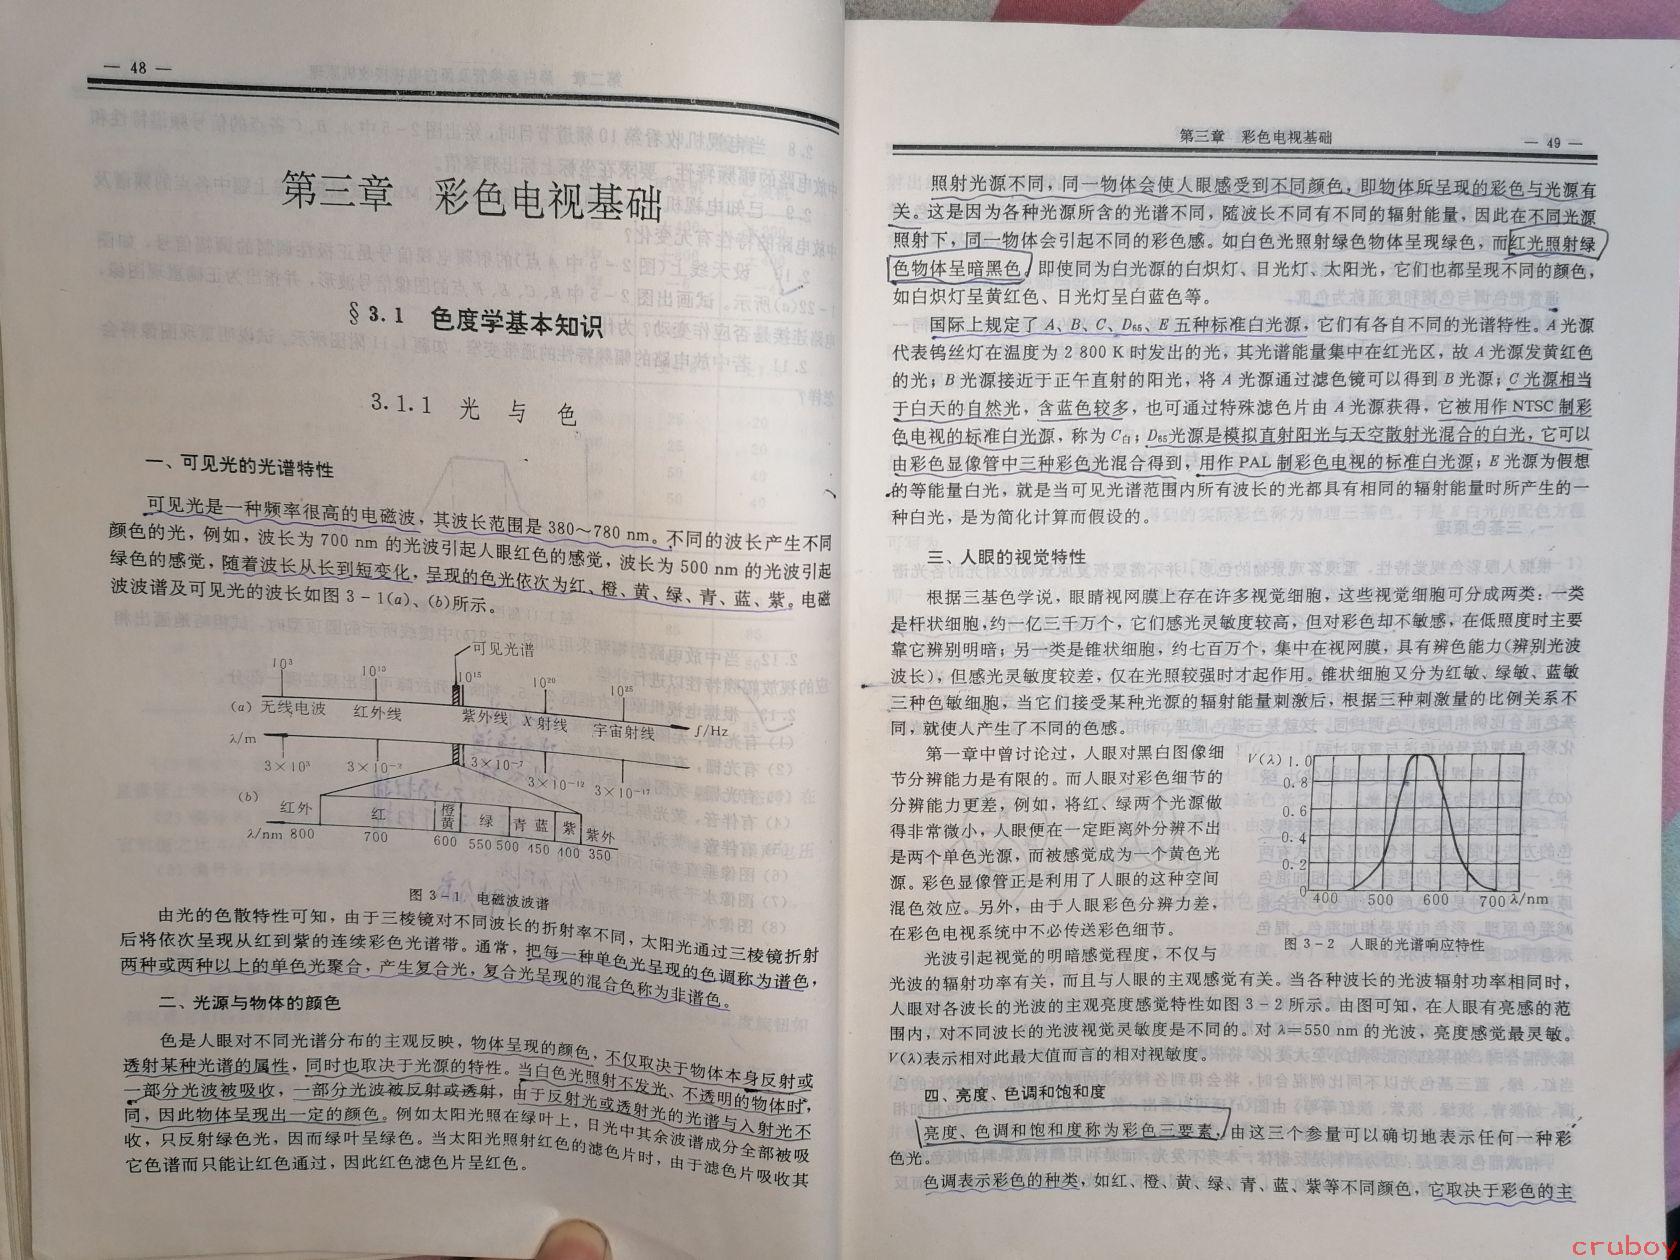 — 48 —
第三章 彩色电视基础
§3.1 色度学基本知识
3.1.1 光 与 色
一、可见光的光谱特性
可见光是一种频率很高的电磁波，其波长范围是380～780 nm。不同的波长产生不同
颜色的光，例如，波长为700 nm 的光波引起人眼红色的感觉，波长为500 nm 的光波引起
绿色的感觉，随着波长从长到短变化，呈现的色光依次为红、橙、黄、绿、青、蓝、紫。电磁
波波谱及可见光的波长如图3-1(a)、(b)所示。
可见光谱
10⁵ 10¹⁰ 10¹⁵ 10²⁰ 10²⁵
(a) 无线电波 红外线 紫外线 X射线 宇宙射线 f/Hz
λ/m
3×10³ 3×10⁻² 3×10⁻⁷ 3×10⁻¹² 3×10⁻¹⁷
(b) 红外 红 橙 黄 绿 青 蓝 紫 紫外
λ/nm 800 700 600 550 500 450 400 350
图3-1 电磁波波谱
由光的色散特性可知，由于三棱镜对不同波长的折射率不同，太阳光通过三棱镜折射
后将依次呈现从红到紫的连续彩色光谱带。通常，把每一种单色光呈现的色调称为谱色，
两种或两种以上的单色光聚合，产生复合光，复合光呈现的混合色称为非谱色。
二、光源与物体的颜色
色是人眼对不同光谱分布的主观反映，物体呈现的颜色，不仅取决于物体本身反射或
透射某种光谱的属性，同时也取决于光源的特性。当白色光照射不发光、不透明的物体时，
一部分光波被吸收，一部分光波被反射或透射，由于反射光或透射光的光谱与入射光不
同，因此物体呈现出一定的颜色。例如太阳光照在绿叶上，日光中其余波谱成分全部被吸
收，只反射绿色光，因而绿叶呈绿色。当太阳光照射红色的滤色片时，由于滤色片吸收其
它色谱而只能让红色通过，因此红色滤色片呈红色。
第三章 彩色电视基础 — 49 —
照射光源不同，同一物体会使人眼感受到不同颜色，即物体所呈现的彩色与光源有
关。这是因为各种光源所含的光谱不同，随波长不同有不同的辐射能量，因此在不同光源
照射下，同一物体会引起不同的彩色感。如白色光照射绿色物体呈现绿色，而红光照射绿
色物体呈暗黑色。即使同为白光源的白炽灯、日光灯、太阳光，它们也都呈现不同的颜色，
如白炽灯呈黄红色、日光灯呈白蓝色等。
国际上规定了A、B、C、D₆₅、E五种标准白光源，它们有各自不同的光谱特性。A光源
代表钨丝灯在温度为2 800 K时发出的光，其光谱能量集中在红光区，故A光源发黄红色
的光；B光源接近于正午直射的阳光，将A光源通过滤色镜可以得到B光源；C光源相当
于白天的自然光，含蓝色较多，也可通过特殊滤色片由A光源获得，它被用作NTSC制彩
色电视的标准白光源，称为C白；D₆₅光源是模拟直射阳光与天空散射光混合的白光，它可以
由彩色显像管中三种彩色光混合得到，用作PAL制彩色电视的标准白光源；E光源为假想
的等能量白光，就是当可见光谱范围内所有波长的光都具有相同的辐射能量时所产生的一
种白光，是为简化计算而假设的。
三、人眼的视觉特性
根据三基色学说，眼睛视网膜上存在许多视觉细胞，这些视觉细胞可分成两类：一类
是杆状细胞，约一亿三千万个，它们感光灵敏度较高，但对彩色却不敏感，在低照度时主要
靠它辨别明暗；另一类是锥状细胞，约七百万个，集中在视网膜，具有辨色能力(辨别光波
波长)，但感光灵敏度较差，仅在光照较强时才起作用。锥状细胞又分为红敏、绿敏、蓝敏
三种色敏细胞，当它们接受某种光源的辐射能量刺激后，根据三种刺激量的比例关系不
同，就使人产生了不同的色感。
第一章中曾讨论过，人眼对黑白图像细
节分辨能力是有限的。而人眼对彩色细节的
分辨能力更差，例如，将红、绿两个光源做
得非常微小，人眼便在一定距离外分辨不出
是两个单色光源，而被感觉成为一个黄色光
源。彩色显像管正是利用了人眼的这种空间
混色效应。另外，由于人眼彩色分辨力差，
在彩色电视系统中不必传送彩色细节。
V(λ) 1.0
0.8
0.6
0.4
0.2
0
400 500 600 700 λ/nm
图3-2 人眼的光谱响应特性
光波引起视觉的明暗感觉程度，不仅与
光波的辐射功率有关，而且与人眼的主观感觉有关。当各种波长的光波辐射功率相同时，
人眼对各波长的光波的主观亮度感觉特性如图3-2所示。由图可知，在人眼有亮感的范
围内，对不同波长的光波视觉灵敏度是不同的。对λ=550 nm的光波，亮度感觉最灵敏。
V(λ)表示相对此最大值而言的相对视敏度。
四、亮度、色调和饱和度
亮度、色调和饱和度称为彩色三要素，由这三个参量可以确切地表示任何一种彩
色光。
色调表示彩色的种类，如红、橙、黄、绿、青、蓝、紫等不同颜色，它取决于彩色的主
cruboy